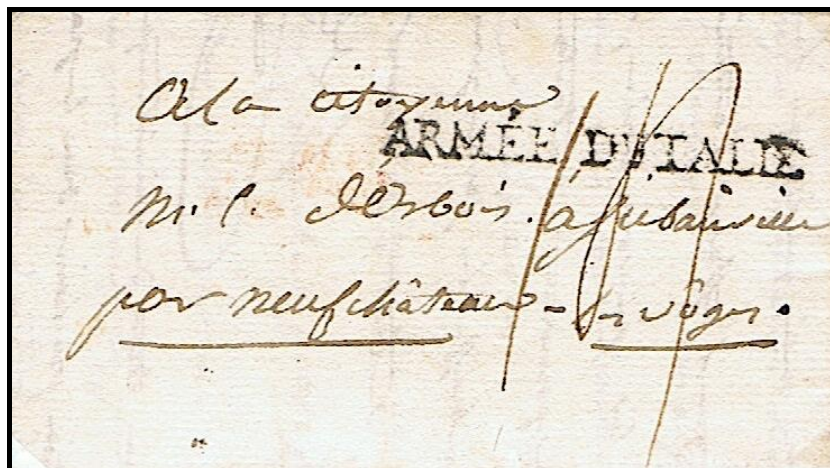 A la citoyenne
ARMÉE D'ITALIE
M. C. desbois. à jubainville
par neufchâteau - en vôges.